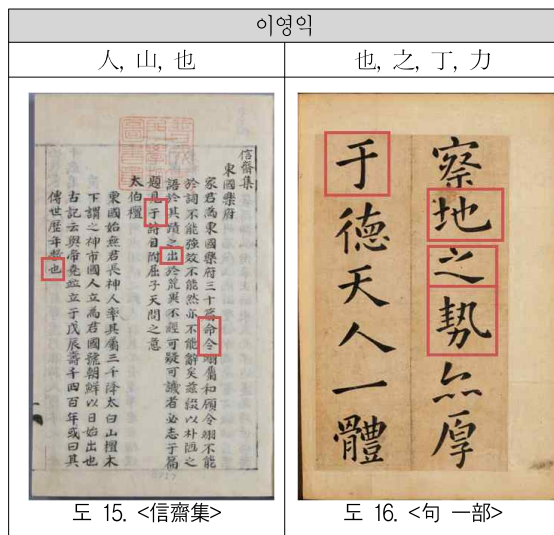 이영익
人, 山, 也
也, 之, 丁, 力
信齋集
東國樂府
家君為東國樂府三十篇命令翊屬和顧令翊不能
於詞不能強效不能然亦不能辭矣玆綴以朴陋之
語於其蹟之出於荒異不經可疑可譏者必志于篇
題見于詩目附屈子天問之意
太伯壇
東國始無君長神人率其屬三千降太白山壇木
下謂之神市國人立為君國號朝鮮以日始出也
古記云與帝堯竝立于戊辰壽千四百年或曰其
傳世歷年數也
도 15. <信齋集>
察地之勢厚
于德天人一體
도 16. <句 一部>